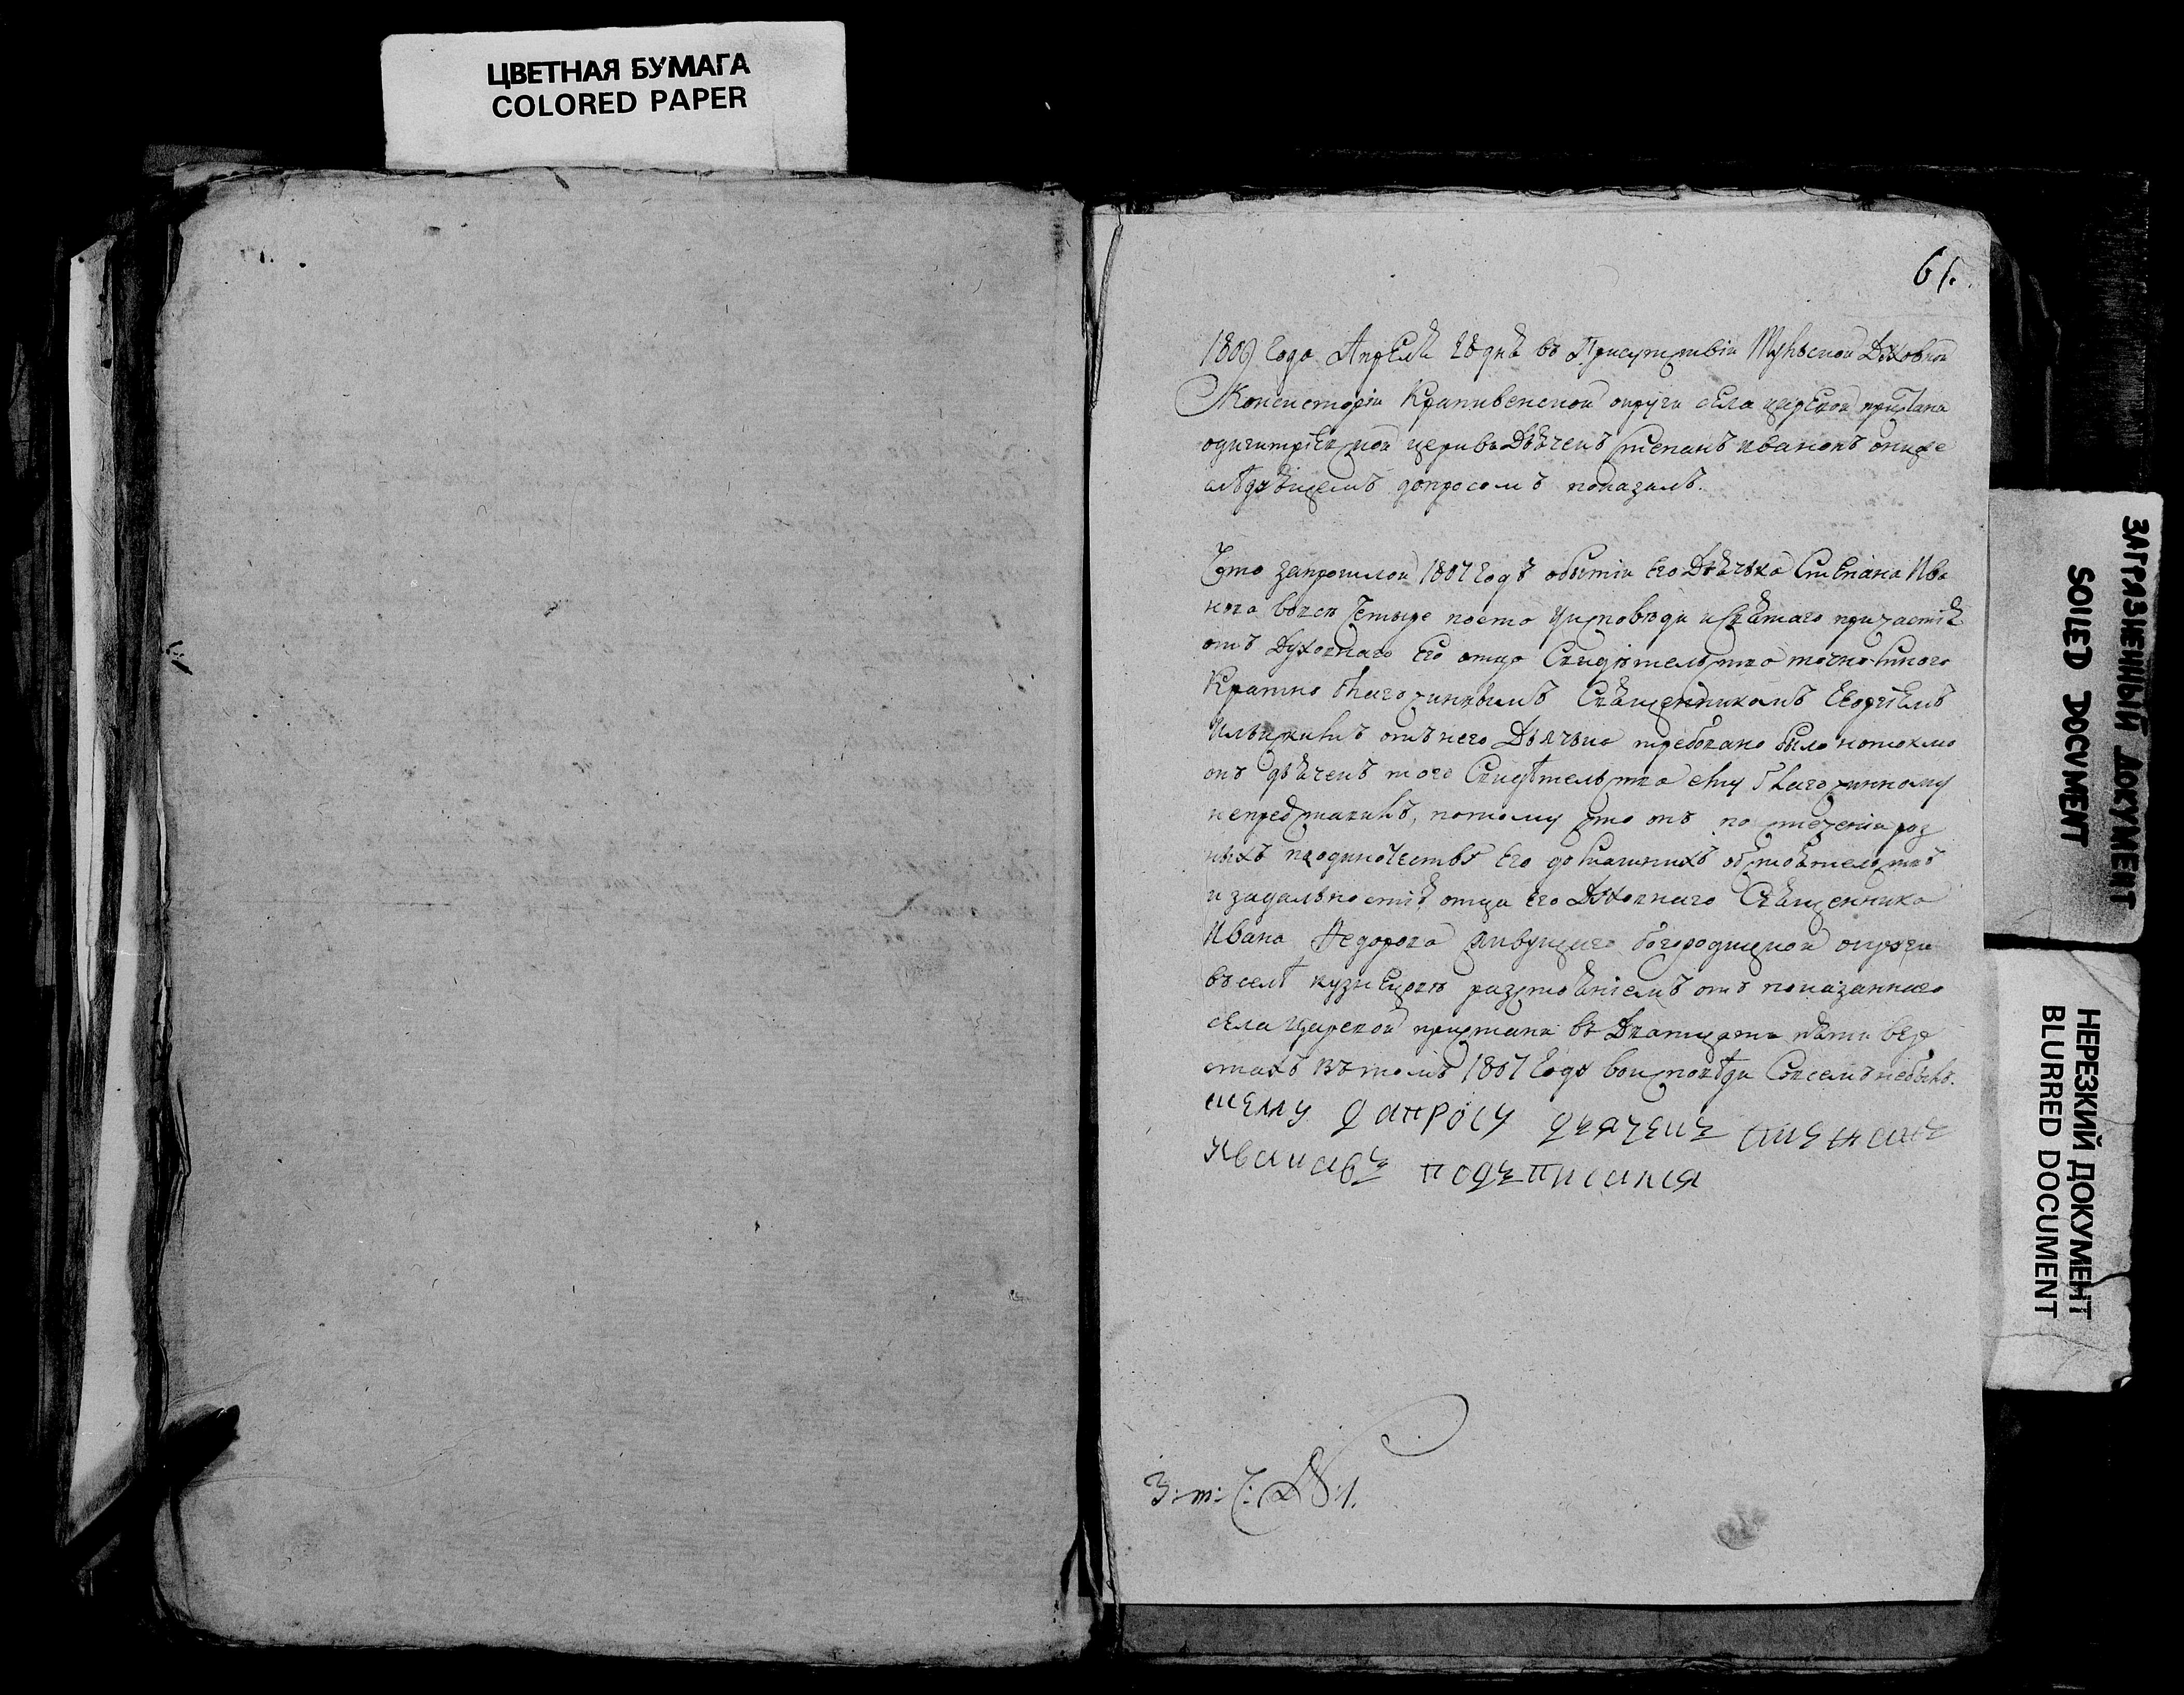 ЦВЕТНАЯ БУМАГА
COLORED PAPER
61.
1809 Года Апреля 28 дня въ Присутствіи Тульской Духовной
Консисторіи Крапивенской округи села царской пристани
одигитріевской церкви Дьячекъ Степанъ Ивановъ ниже
слѣдующемъ допросомъ показалъ.
Что запрошлой 1807 Годъ обытіи Его Дьячька Степана Ива
нова вовсѣ Четыре поста Уисповѣди и Святаго причастія
отъ Духовнаго Его отца Свидѣтельства точно много
Кратно благочиннымъ Священникомъ Георгіемъ
отънего Дьячька требовано было нотокмо
онъ дьячекъ того Свидѣтельства ему благочинному
непредставилъ, потому что онъ по стеченіи раз
ныхъ поодиночеству Его домашнихъ обстоятельствъ
и задальностію отца Его Духовнаго Священника
Ивана Федорова живущаго богородицкой округи
въ селѣ кузнецовѣ разстояніемъ отъ показаннаго
села Царской пристани въ Дватцати пяти вер
стахъ вътомъ 1807 Году воисповѣди Совсемъ небылъ.
сиему допросу дьячекъ степанъ
Ивановъ подъписался
З: т: Ч: №: 1.
ЗАГРЯЗНЕННЫЙ ДОКУМЕНТ
SOILED DOCUMENT
НЕРЕЗКИЙ ДОКУМЕНТ
BLURRED DOCUMENT